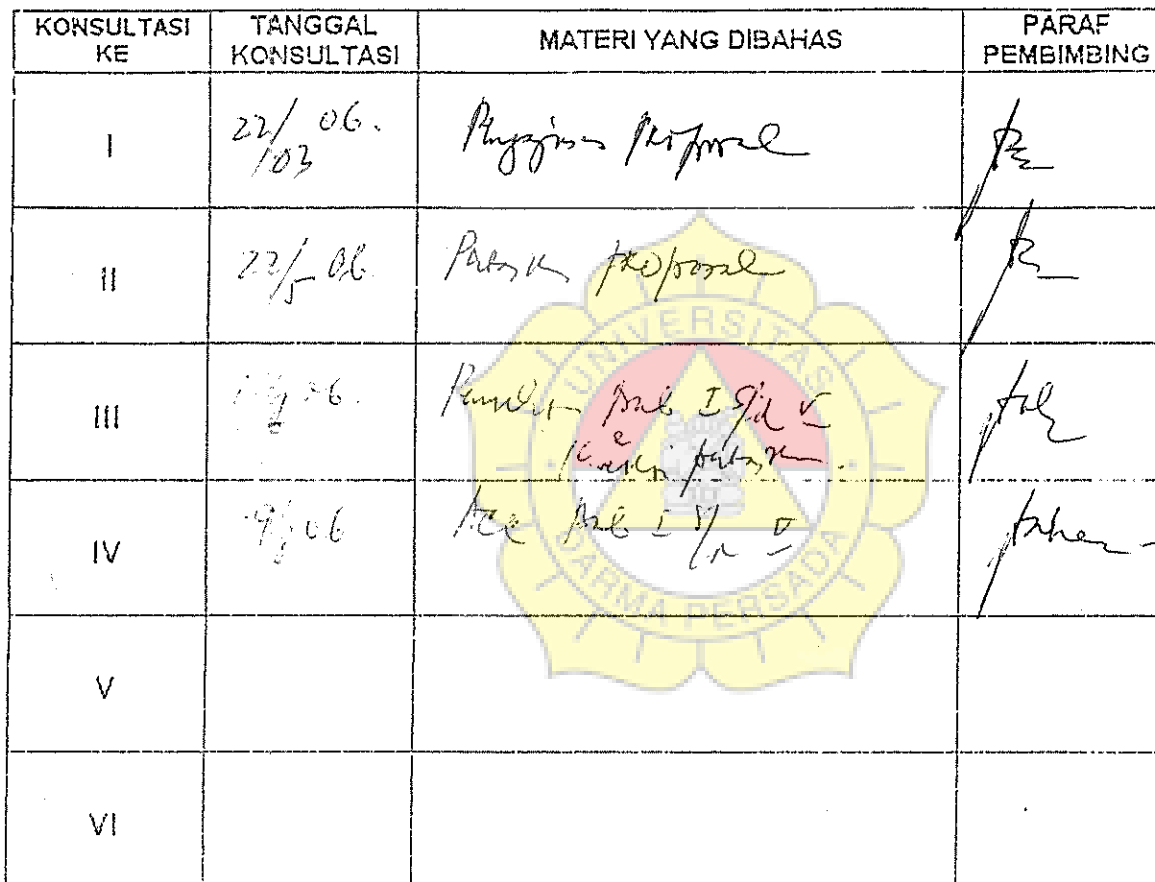 KONSULTASI KE
TANGGAL KONSULTASI
MATERI YANG DIBAHAS
PARAF PEMBIMBING
I
22/03 06.
Pengajuan proposal
II
22/5 06.
proposal
III
06.
Bab I s/d V
IV
06
Acc Bab I s/d V
V
VI
UNIVERSITAS
DARMA PERSADA